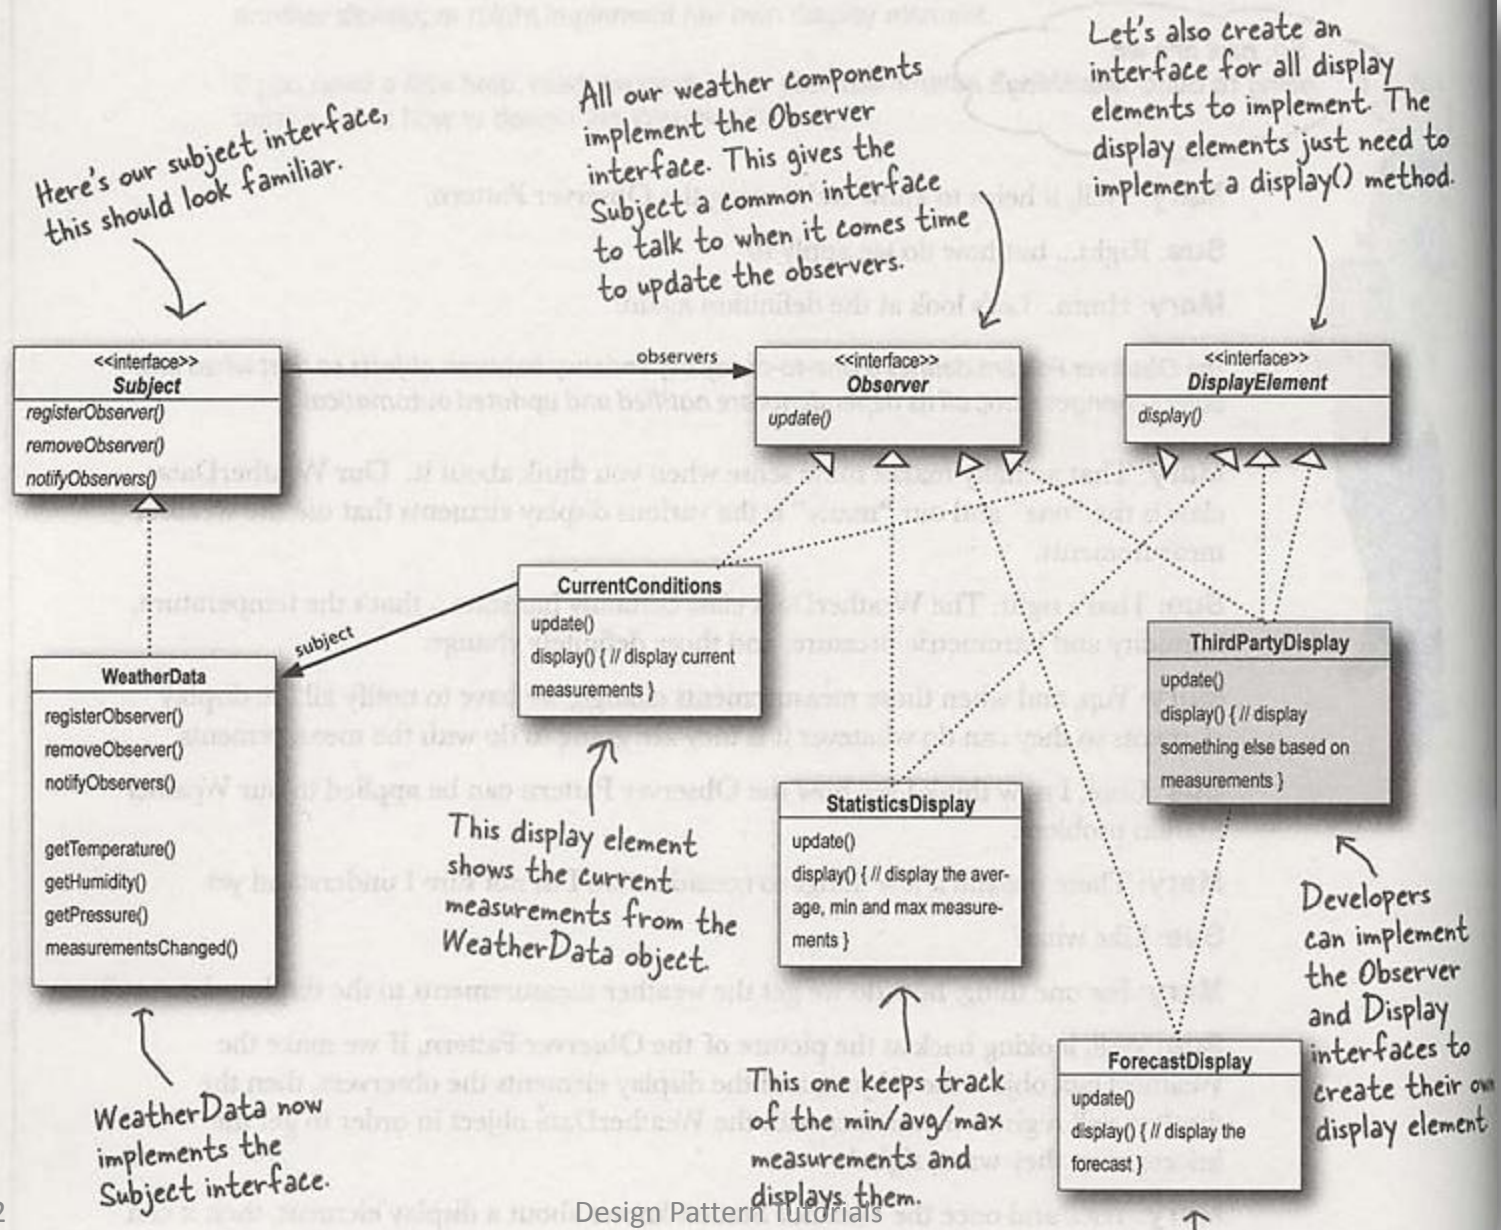 Here's our subject interface,
this should look familiar.
All our weather components
implement the Observer
interface. This gives the
Subject a common interface
to talk to when it comes time
to update the observers.
Let's also create an
interface for all display
elements to implement. The
display elements just need to
implement a display() method.
<<interface>>
Subject
registerObserver()
removeObserver()
notifyObservers()
observers
<<interface>>
Observer
update()
<<interface>>
DisplayElement
display()
subject
WeatherData
registerObserver()
removeObserver()
notifyObservers()
getTemperature()
getHumidity()
getPressure()
measurementsChanged()
CurrentConditions
update()
display() { // display current
measurements }
ThirdPartyDisplay
update()
display() { // display
something else based on
measurements }
StatisticsDisplay
update()
display() { // display the aver-
age, min and max measure-
ments }
ForecastDisplay
update()
display() { // display the
forecast }
This display element
shows the current
measurements from the
WeatherData object.
Developers
can implement
the Observer
and Display
interfaces to
create their own
display element
WeatherData now
implements the
Subject interface.
This one keeps track
of the min/avg/max
measurements and
displays them.
2
Design Pattern Tutorials